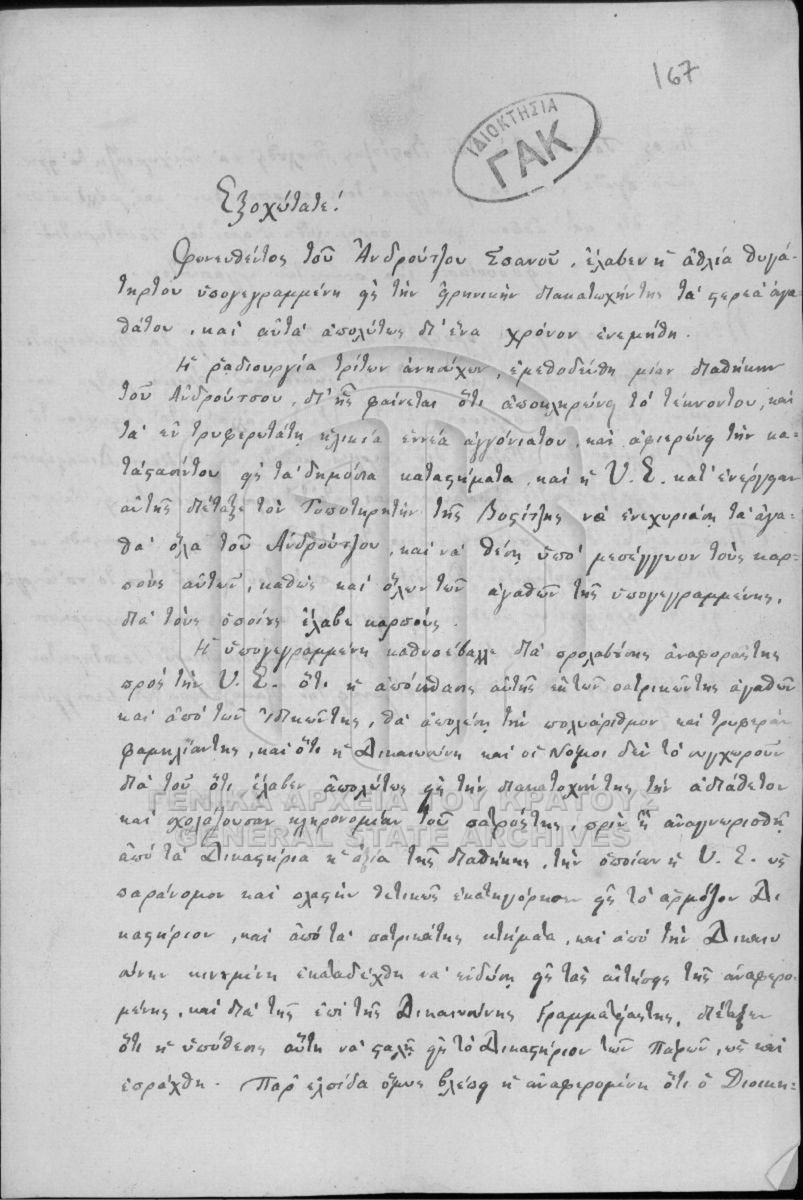 167
ΙΔΙΟΚΤΗΣΙΑ
ΓΑΚ
Ἐξοχώτατε!
Φονευθέντος τοῦ Ἀνδρούτζου Σπανοῦ, ἔλαβεν ἡ ἀθλία θυγά-
τηρτου ὑπογεγραμμένη εἰς τὴν εἰρηνικὴν διακατοχήντης τὰ στερεὰ ἀγα-
θάτου, καὶ αὐτὰ ἀπολύτως δι' ἕνα χρόνον ἐνεμήθη.
Ἡ ῥαδιουργία τρίτων ἀνησύχων, ἐμεθοδεύθη μίαν διαθήκην
τοῦ Ἀνδρούτσου, δι' ἧς φαίνεται ὅτι ἀποκληρώνει τὸ τέκνοντου, καὶ
τὰ ἐν τρυφερωτάτῃ ἡλικίᾳ ἐννέα ἀγγόνιατου, καὶ ἀφιερώνει τὴν κα-
τάστασίντου εἰς τὰ δημόσια καταστήματα, καὶ ἡ Υ. Ε. κατ' ἐνέργειαν
αὐτῆς διέταξε τὸν Τοποτηρητὴν τῆς Βοστίτζης νὰ ἐνεχυριάσῃ τὰ ἀγα-
θὰ ὅλα τοῦ Ἀνδρούτζου, καὶ νὰ θέσῃ ὑπὸ μεσέγγυον τοὺς καρ-
ποὺς αὐτῶν, καθὼς καὶ ὅλων τῶν ἀγαθῶν τῆς ὑπογεγραμμένης,
διὰ τοὺς ὁποίους ἔλαβε καρπούς.
Ἡ ὑπογεγραμμένη καθυπέβαλλε διὰ προλαβούσης ἀναφορᾶςτης
πρὸς τὴν Υ. Ε. ὅτι ἡ ἀπόσπασις αὐτῆς ἐκ τῶν πατρικῶντης ἀγαθῶν
καὶ ἀπὸ τῶν ἰδικῶντης, θὰ ἀπολέσῃ τὴν πολυάριθμον καὶ τρυφερὰν
φαμηλίαντης, καὶ ὅτι ἡ Δικαιοσύνη καὶ οἱ Νόμοι δὲν τὸ συγχωροῦν
διὰ τοῦ ὅτι ἔλαβεν ἀπολύτως εἰς τὴν διακατοχήντης τὴν ἀδιάθετον
καὶ σχολάζουσαν κληρονομίαν τοῦ πατρόςτης, πρὶν ἢ ἀναγνωρισθῇ
ἀπὸ τὰ Δικαστήρια ἡ ἀξία τῆς διαθήκης, τὴν ὁποίαν ἡ Υ. Ε. ὡς
παράνομον καὶ πλαστὴν θετικῶς ἐκατηγόρησεν εἰς τὸ ἁρμόζον Δι-
καστήριον, καὶ ἀπὸ τὰ πατρικάτης κτήματα, καὶ ἀπὸ τὴν Δικαιο
σύνην κινουμένη ἐκαταδέχθη νὰ ἐνδώσῃ εἰς τὰς αἰτήσεις τῆς ἀναφερο-
μένης, καὶ διὰ τῆς ἐπὶ τῆς Δικαιοσύνης Γραμματείαςτης, διέταξεν
ὅτι ἡ ὑπόθεσις αὕτη νὰ σταλῇ εἰς τὸ Δικαστήριον τῶν Πατρῶν, ὡς καὶ
ἐπράχθη. Παρ' ἐλπίδα ὅμως βλέπει ἡ ἀναφερομένη ὅτι ὁ Διοικη-
ΓΕΝΙΚΑ ΑΡΧΕΙΑ ΤΟΥ ΚΡΑΤΟΥΣ
GENERAL STATE ARCHIVES